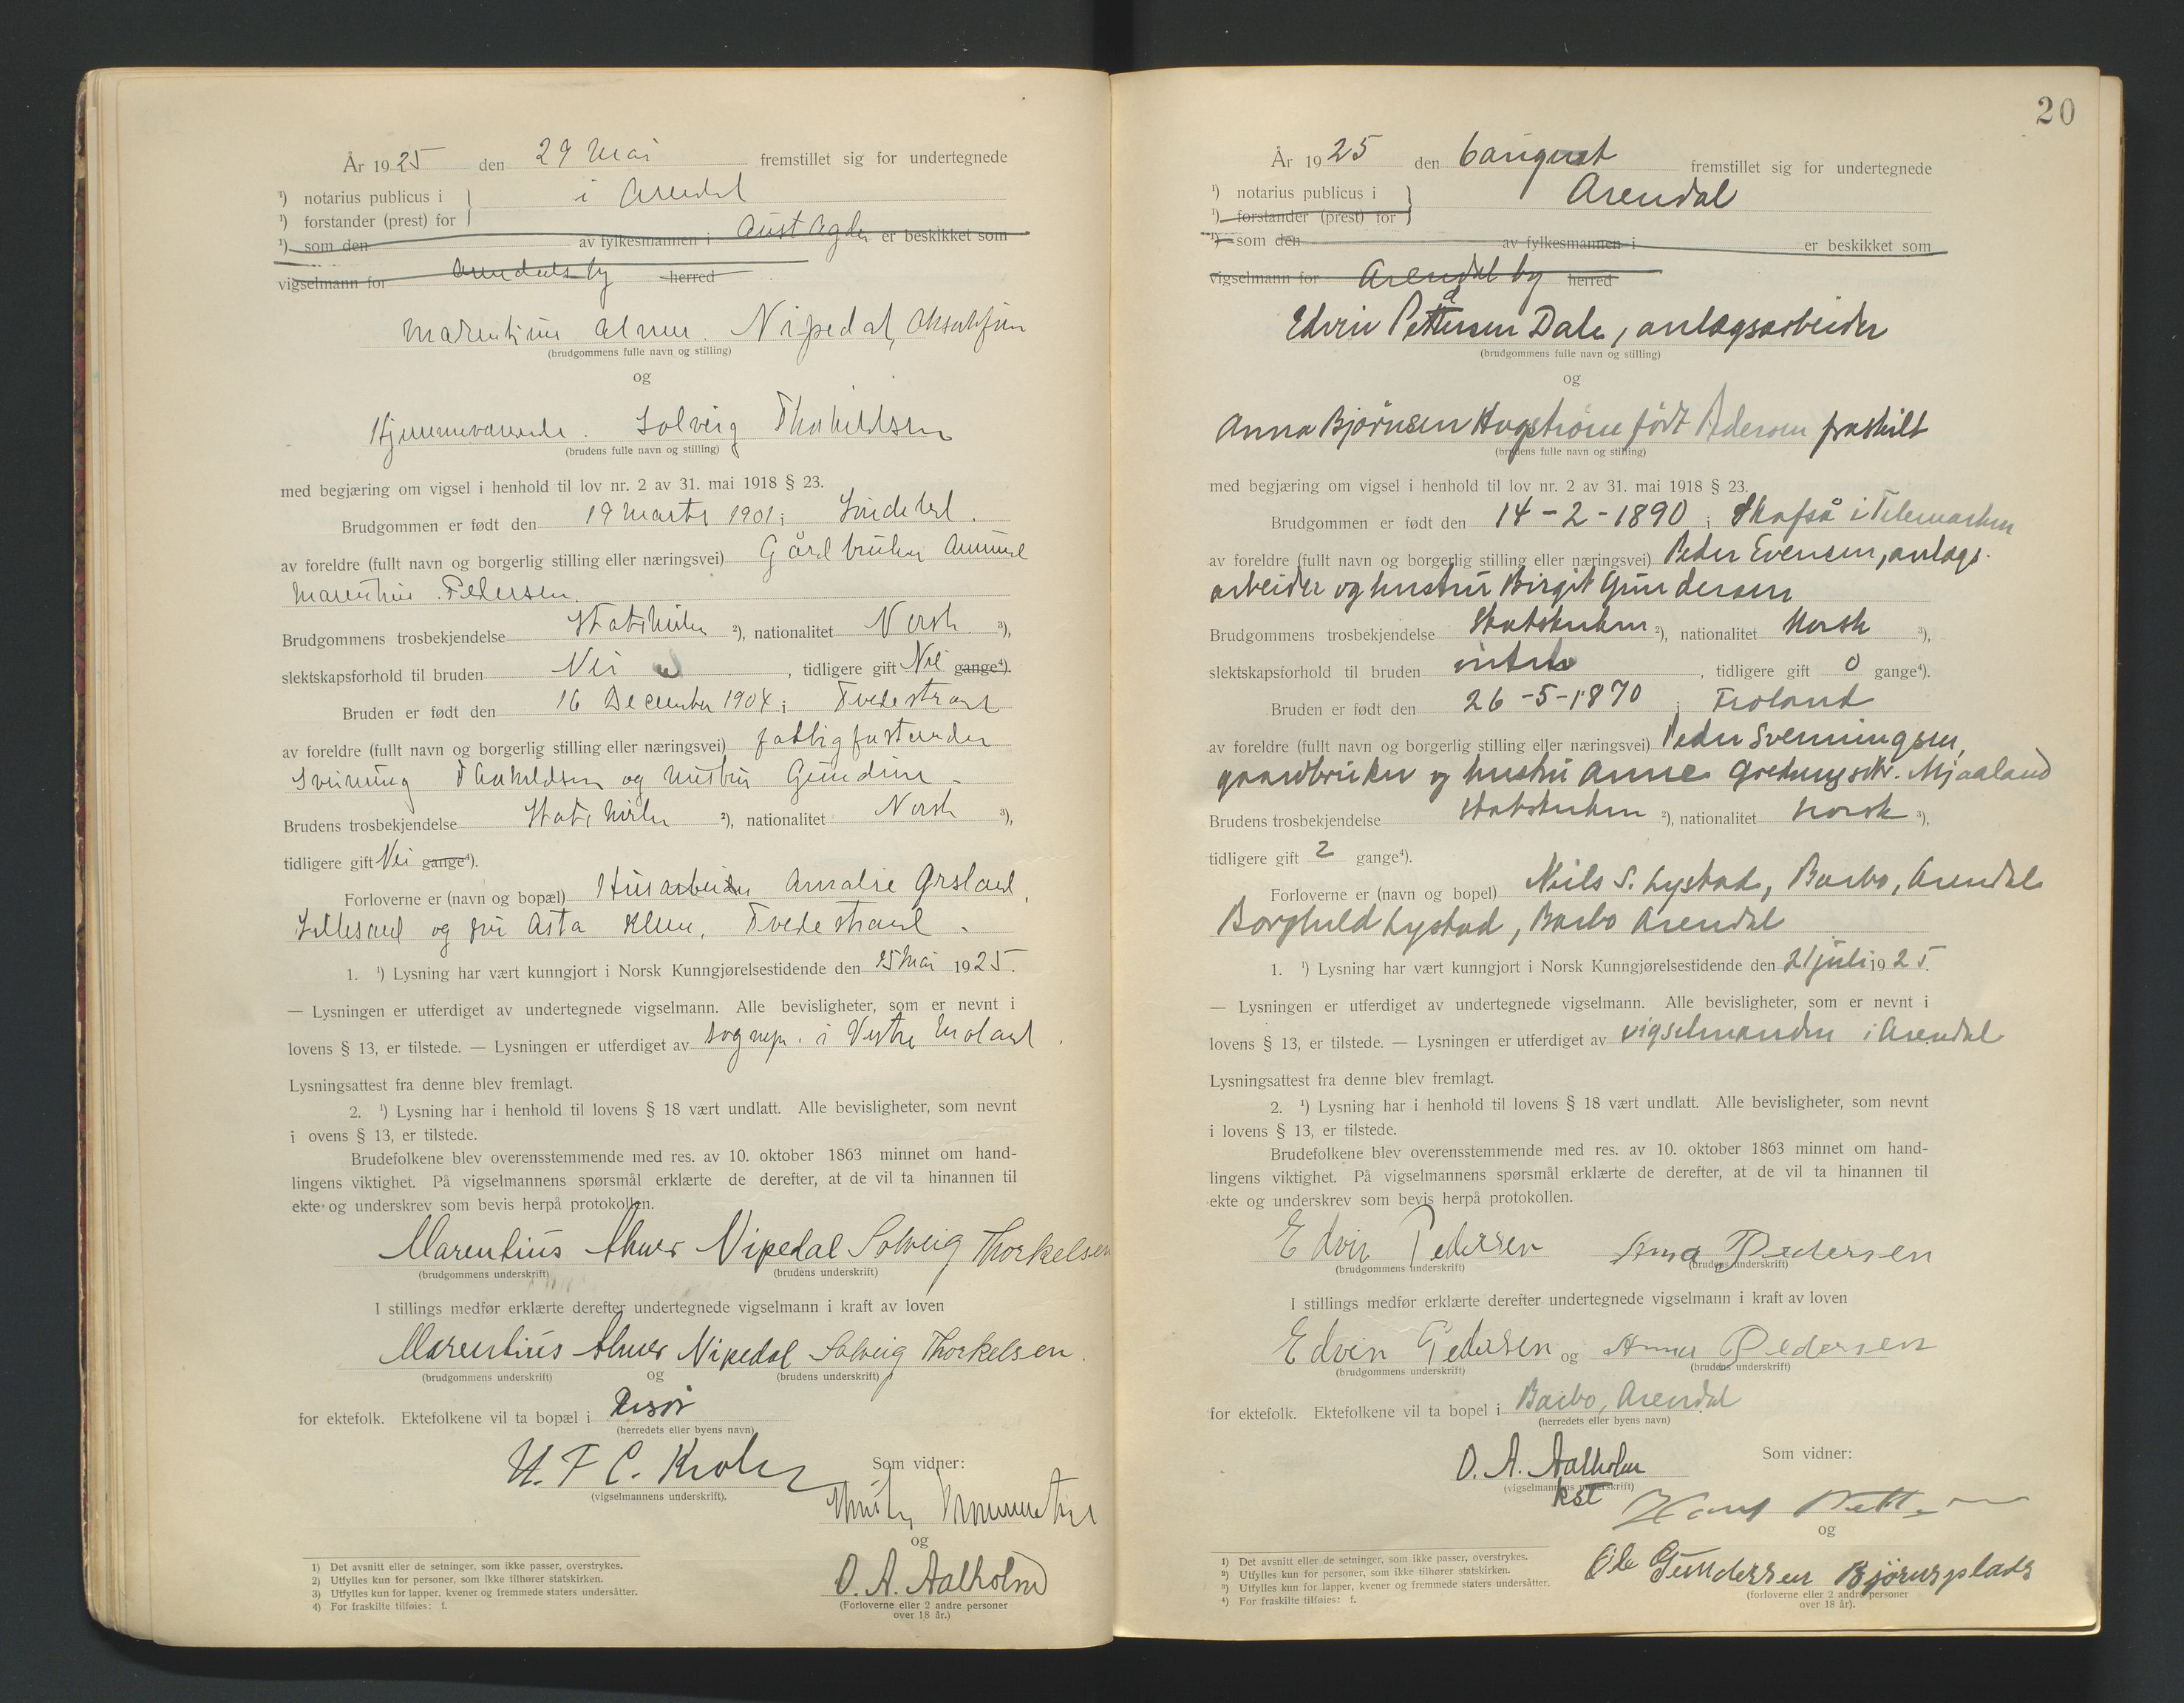 År 1925 den 29 Mai fremstillet sig for undertegnede
¹) notarius publicus i } i Arendal
¹) forstander (prest) for
¹) som den av fylkesmannen i Aust Agder er beskikket som
vigselmann for Arendals by herred
Marentius Almer Nipedal,
(brudgommens fulle navn og stilling)
og
Hjemmeværende. Solveig Thorkildsen
(brudens fulle navn og stilling)
med begjæring om vigsel i henhold til lov nr. 2 av 31. mai 1918 § 23.
Brudgommen er født den 19 Marts 1901 i
av foreldre (fullt navn og borgerlig stilling eller næringsvei) Gårdbruker
Marentius Pedersen.
Brudgommens trosbekjendelse Statskirken ²), nationalitet Norsk ³),
slektskapsforhold til bruden Nei, tidligere gift Nei gange⁴).
Bruden er født den 16 December 1904 i Tvedestrand
av foreldre (fullt navn og borgerlig stilling eller næringsvei) fattigforstander
Svenning Thorkildsen og hustru Gundine
Brudens trosbekjendelse Statskirken ²), nationalitet Norsk ³),
tidligere gift Nei gange⁴).
Forloverne er (navn og bopæl) Husarbeider Amalie Grsland,
Lillesand og fru Asta Klem, Tvedestrand.
1. ¹) Lysning har vært kunngjort i Norsk Kunngjørelsestidende den 15 Mai 1925.
— Lysningen er utferdiget av undertegnede vigselmann. Alle bevisligheter, som er nevnt i
lovens § 13, er tilstede. — Lysningen er utferdiget av sognepr. i Vestre Moland.
Lysningsattest fra denne blev fremlagt.
2. ¹) Lysning har i henhold til lovens § 18 vært undlatt. Alle bevisligheter, som nevnt
i ovens § 13, er tilstede.
Brudefolkene blev overensstemmende med res. av 10. oktober 1863 minnet om hand-
lingens viktighet. På vigselmannens spørsmål erklærte de derefter, at de vil ta hinannen til
ekte og underskrev som bevis herpå protokollen.
Marentius Almer Nipedal Solveig Thorkelsen
(brudgommens underskrift) (brudens underskrift)
I stillings medfør erklærte derefter undertegnede vigselmann i kraft av loven
Marentius Almer Nipedal Solveig Thorkelsen.
(brudgommens underskrift) og (brudens underskrift)
for ektefolk. Ektefolkene vil ta bopæl i Risør
(herredets eller byens navn)
H. F C. Krohn
Som vidner:
(vigselmannens underskrift).
og
O. A. Aalholm
(Forloverne eller 2 andre personer
over 18 år.)
1) Det avsnitt eller de setninger, som ikke passer, overstrykes.
2) Utfylles kun for personer, som ikke tilhører statskirken.
3) Utfylles kun for lapper, kvener og fremmede staters undersåtter.
4) For fraskilte tilføies: f.
20
År 1925 den 6 august fremstillet sig for undertegnede
¹) notarius publicus i } Arendal
¹) forstander (prest) for
¹) som den av fylkesmannen i er beskikket som
vigselmann for Arendal by herred
Edvin Pettersen Dale, anlægsarbeider
(brudgommens fulle navn og stilling)
og
Anna Bjørnsen Hagstrøm født Pedersen fraskilt
(brudens fulle navn og stilling)
med begjæring om vigsel i henhold til lov nr. 2 av 31. mai 1918 § 23.
Brudgommen er født den 14-2-1890 i Skafså i Telemarken
av foreldre (fullt navn og borgerlig stilling eller næringsvei) Peder Evensen, anlægs-
arbeider og hustru Birgit Gundersen
Brudgommens trosbekjendelse Statskirken ²), nationalitet Norsk ³),
slektskapsforhold til bruden intet, tidligere gift 0 gange⁴).
Bruden er født den 26-5-1870 i Froland
av foreldre (fullt navn og borgerlig stilling eller næringsvei) Peder Svenningsen,
gaardbruker og hustru Anne Mjaaland
Brudens trosbekjendelse statskirken ²), nationalitet norsk ³),
tidligere gift 2 gange⁴).
Forloverne er (navn og bopel) Niels S. Lystad, Barbo, Arendal
Borghild Lystad, Barbo Arendal
1. ¹) Lysning har vært kunngjort i Norsk Kunngjørelsestidende den 21 juli 1925.
— Lysningen er utferdiget av undertegnede vigselmann. Alle bevisligheter, som er nevnt i
lovens § 13, er tilstede. — Lysningen er utferdiget av vigselmanden i Arendal
Lysningsattest fra denne blev fremlagt.
2. ¹) Lysning har i henhold til lovens § 18 vært undlatt. Alle bevisligheter, som nevnt
i lovens § 13, er tilstede.
Brudefolkene blev overensstemmende med res. av 10. oktober 1863 minnet om hand-
lingens viktighet. På vigselmannens spørsmål erklærte de derefter, at de vil ta hinannen til
ekte og underskrev som bevis herpå protokollen.
Edvin Pedersen Anna Pedersen
(brudgommens underskrift) (brudens underskrift)
I stillings medfør erklærte derefter undertegnede vigselmann i kraft av loven
Edvin Pedersen og Anna Pedersen
(brudgommens underskrift) (brudens underskrift)
for ektefolk. Ektefolkene vil ta bopel i Barbo, Arendal
(herredets eller byens navn)
O. A. Aalholm
Som vidner:
(vigselmannens underskrift)
kst
og
Ole Gundersen Bjørnsplads
(forloverne eller 2 andre personer
over 18 år).
¹) Det avsnitt eller de setninger, som ikke passer, overstrykes.
²) Utfylles kun for personer, som ikke tilhører statskirken.
³) Utfylles kun for lapper, kvener og fremmede staters undersåtter.
⁴) For fraskilte tilføies: f.